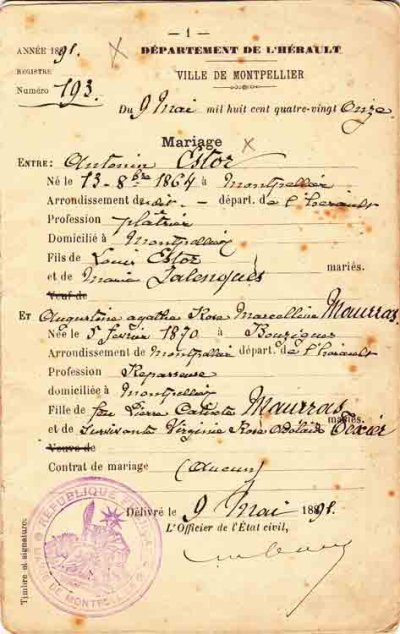 — 1 —
ANNÉE 1891.
DÉPARTEMENT DE L'HÉRAULT
REGISTRE
VILLE DE MONTPELLIER
Numéro 193.
Du 9 Mai mil huit cent quatre-vingt Onze
Mariage
ENTRE: Antonin Estor
Né le 13 - 8bre 1864 à Montpellier
Arrondissement dudit - départ. de l'hérault
Profession plâtrier
Domicilié à Montpellier
Fils de Louis Estor
et de Marie Jalenques mariés.
Veuf de
ET Augustine agathe Rose Marcelline Maurras
Née le 5 février 1870 à Bouzigues
Arrondissement de Montpellier départ. de l'hérault
Profession Repasseuse
domiciliée à Montpellier
Fille de feu Pierre Maurras
et de Survivante Virginie Rose Adelaide Texier mariés.
Veuve de
Contrat de mariage (Aucun)
Délivré le 9 Mai 1891.
L'Officier de l'État civil,
Timbre et signature:
RÉPUBLIQUE FRANÇAISE
VILLE DE MONTPELLIER